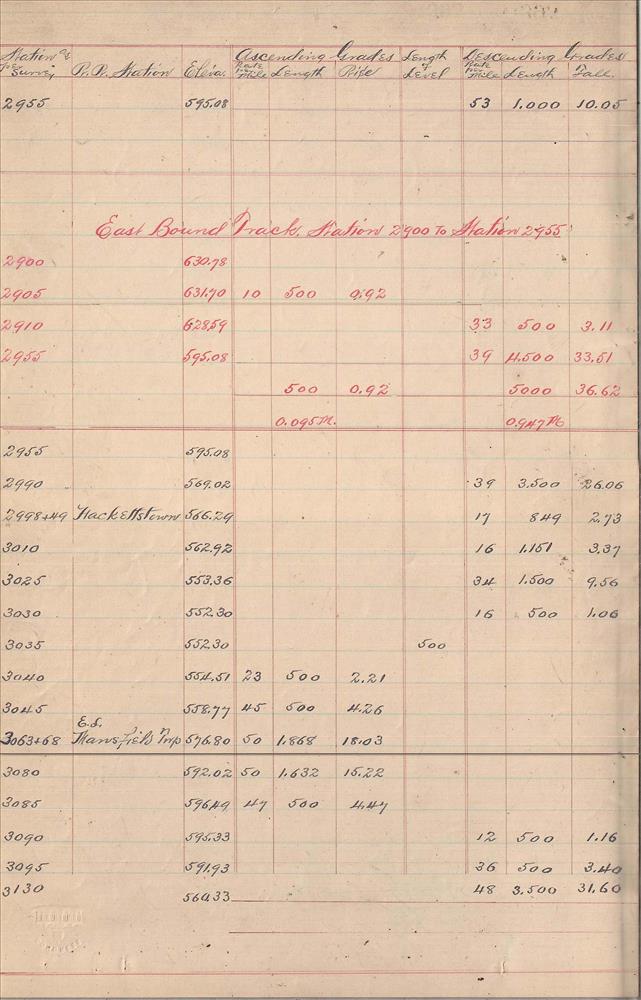 Station as per Survey R.R. Station Eleva. Ascending Grades Rate per Mile Length Rise Length of Level Descending Grades Rate per Mile Length Fall.
2955 595.08 53 1.000 10.05
East Bound Track, Station 2900 To Station 2955
2900 630.78
2905 631.70 10 500 0.92
2910 628.59 33 500 3.11
2955 595.08 39 4.500 33.51
500 0.92 5000 36.62
0.095 M. 0.947 M
2955 595.08
2990 569.02 39 3.500 26.06
2998+49 Hackettstown 566.29 17 849 2.73
3010 562.92 16 1.151 3.37
3025 553.36 34 1.500 9.56
3030 552.30 16 500 1.06
3035 552.30 500
3040 554.51 23 500 2.21
3045 558.77 45 500 4.26
E.S.
3063+68 Mansfield Twp 576.80 50 1.868 18.03
3080 592.02 50 1.632 15.22
3085 596.49 47 500 4.47
3090 595.33 12 500 1.16
3095 591.93 36 500 3.40
3130 560.33 48 3.500 31.60